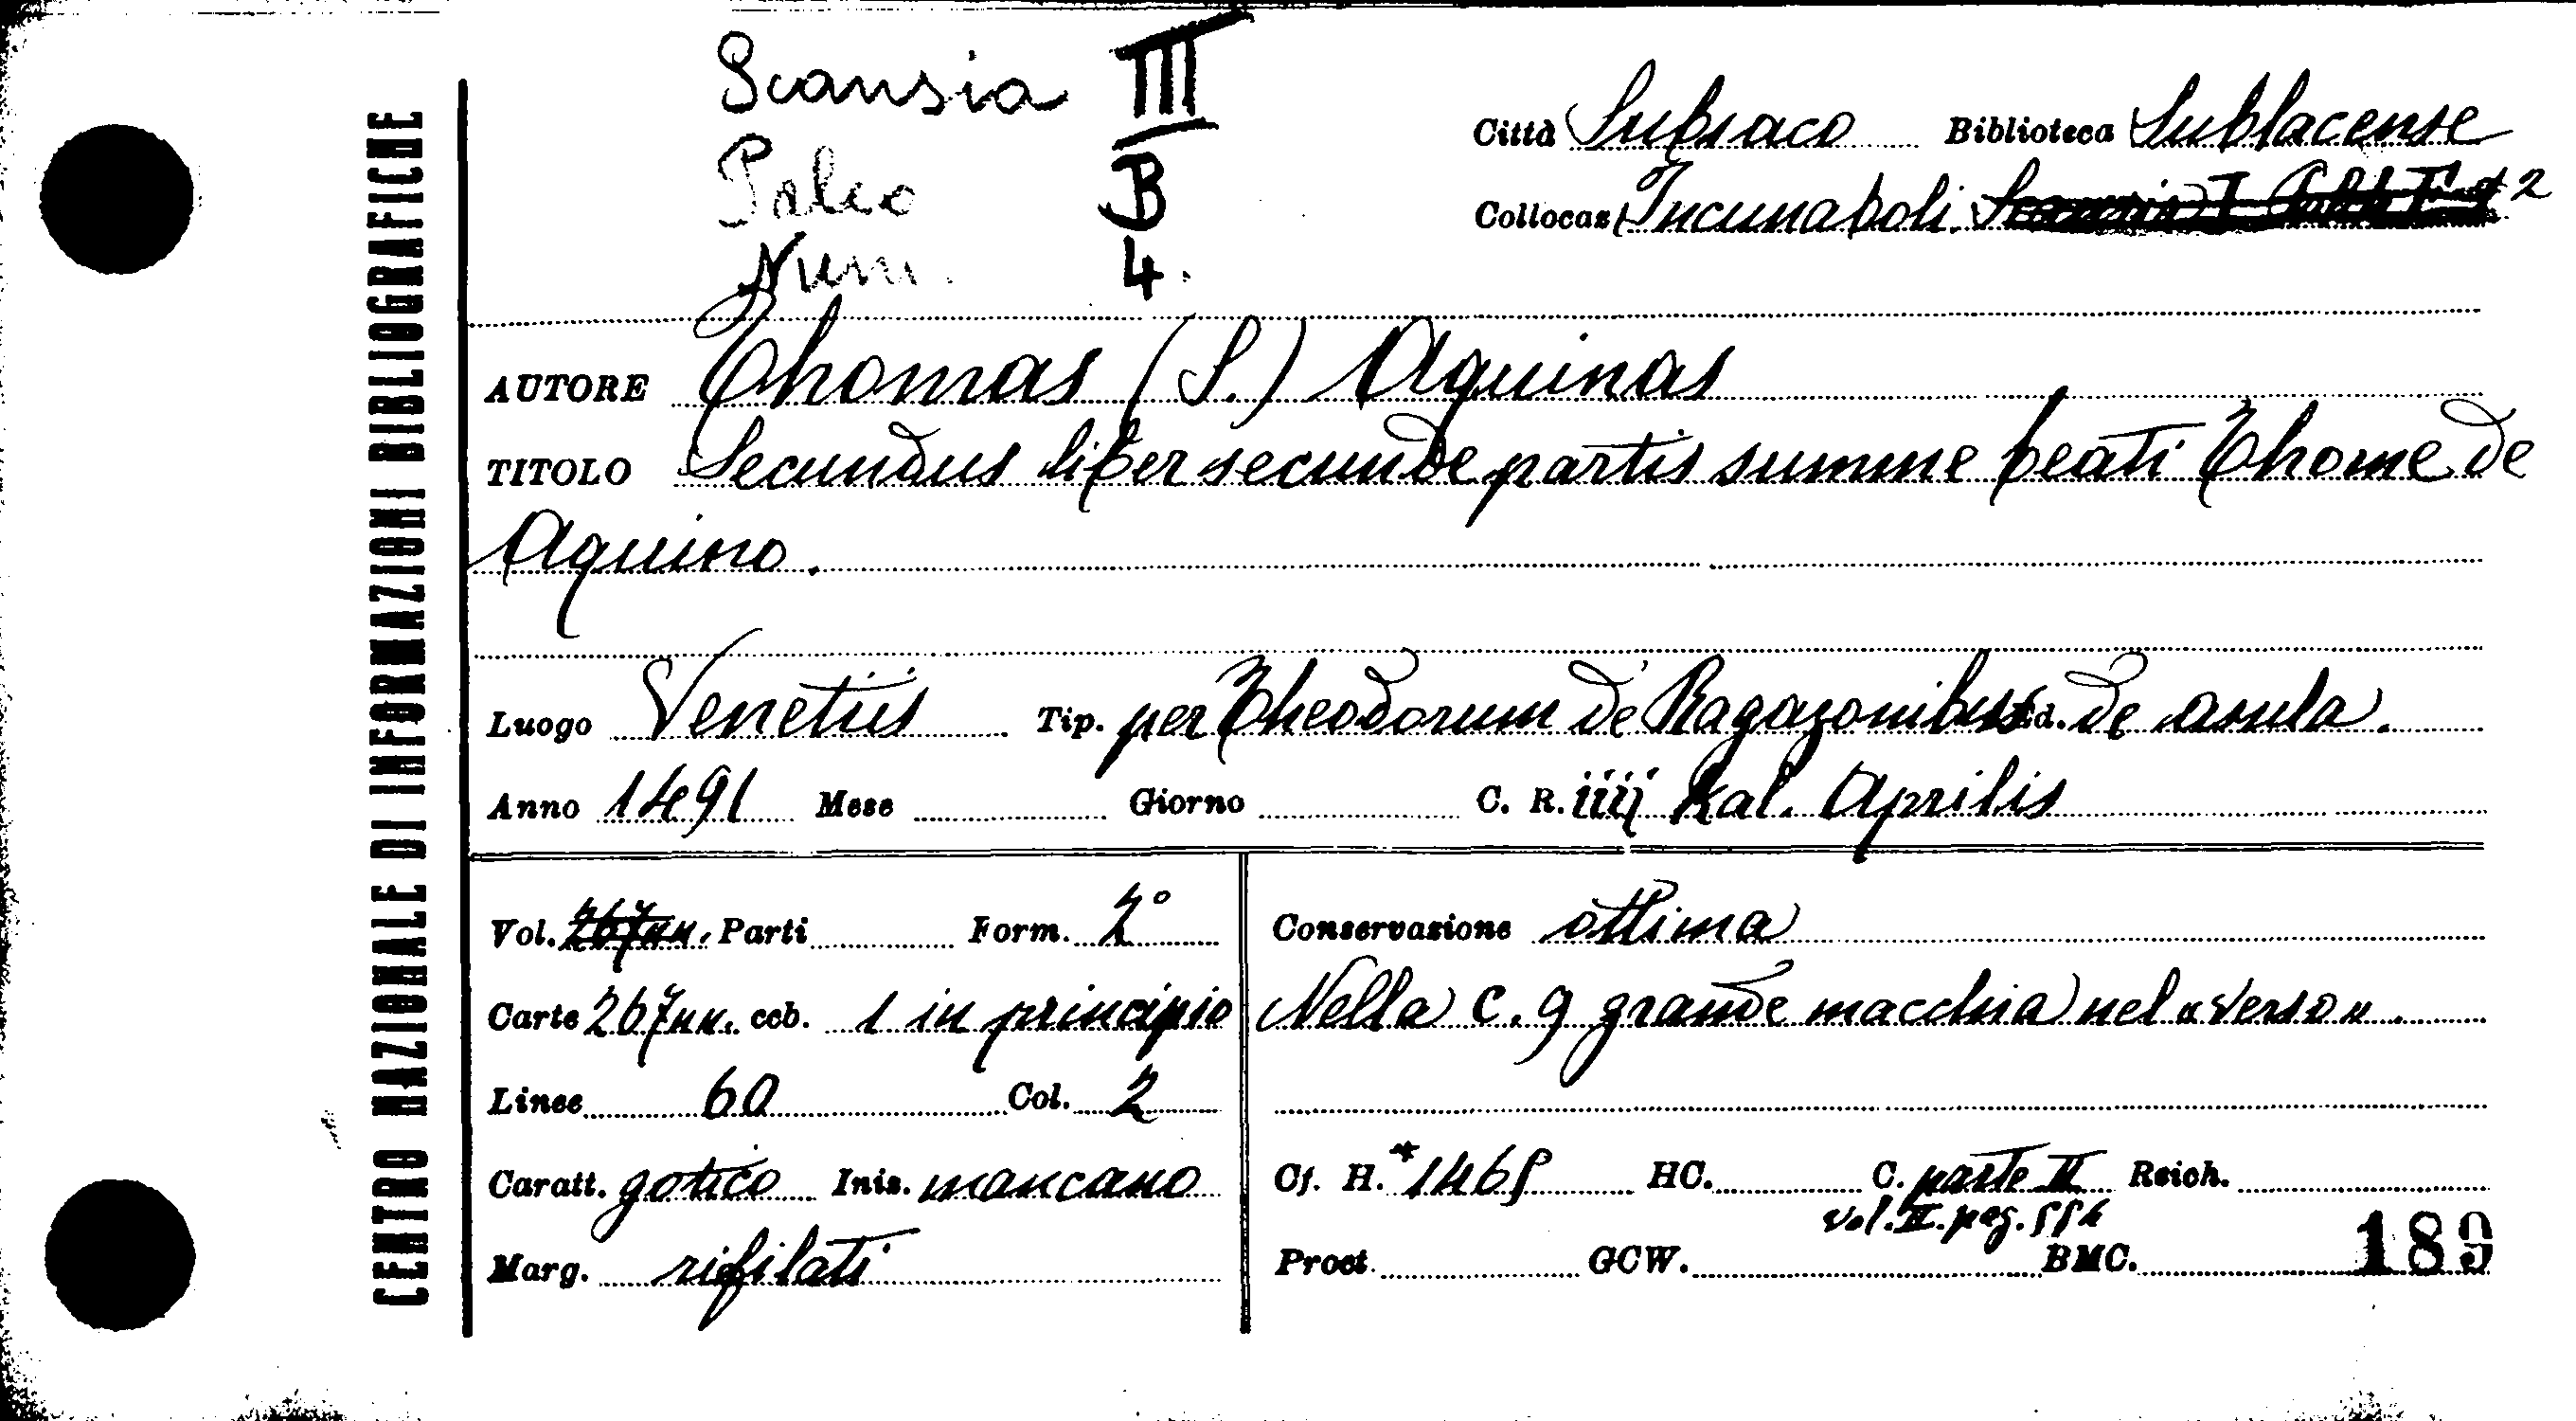 CENTRO NAZIONALE DI INFORMAZIONI BIBLIOGRAFICHE
Scansia III
Palco B
Num. 4.
Città Subiaco Biblioteca Sublacense
Collocaz. Incunaboli. Scansia I 2
AUTORE Thomas (S.) Aquinas
TITOLO Secundus liber secunde partis summe beati Thome de
Aquino.
Luogo Venetiis Tip. per Theodorum de Ragazonibus Ed. de asula.
Anno 1491 Mese Giorno C. R. iiij Kal. Aprilis
Vol. 267 nn. Parti Form. 2°
Carte 267 nn. ccb. 1 in principio
Linee 60 Col. 2
Caratt. gotico Iniz. mancano
Marg. rifilati
Conservazione ottima
Nella C. 9 grande macchia nel «verso».
Cf. H. *1465 HC. C. parte II Reich.
vol. II. pag. 554
Proct. GCW. BMC. 189